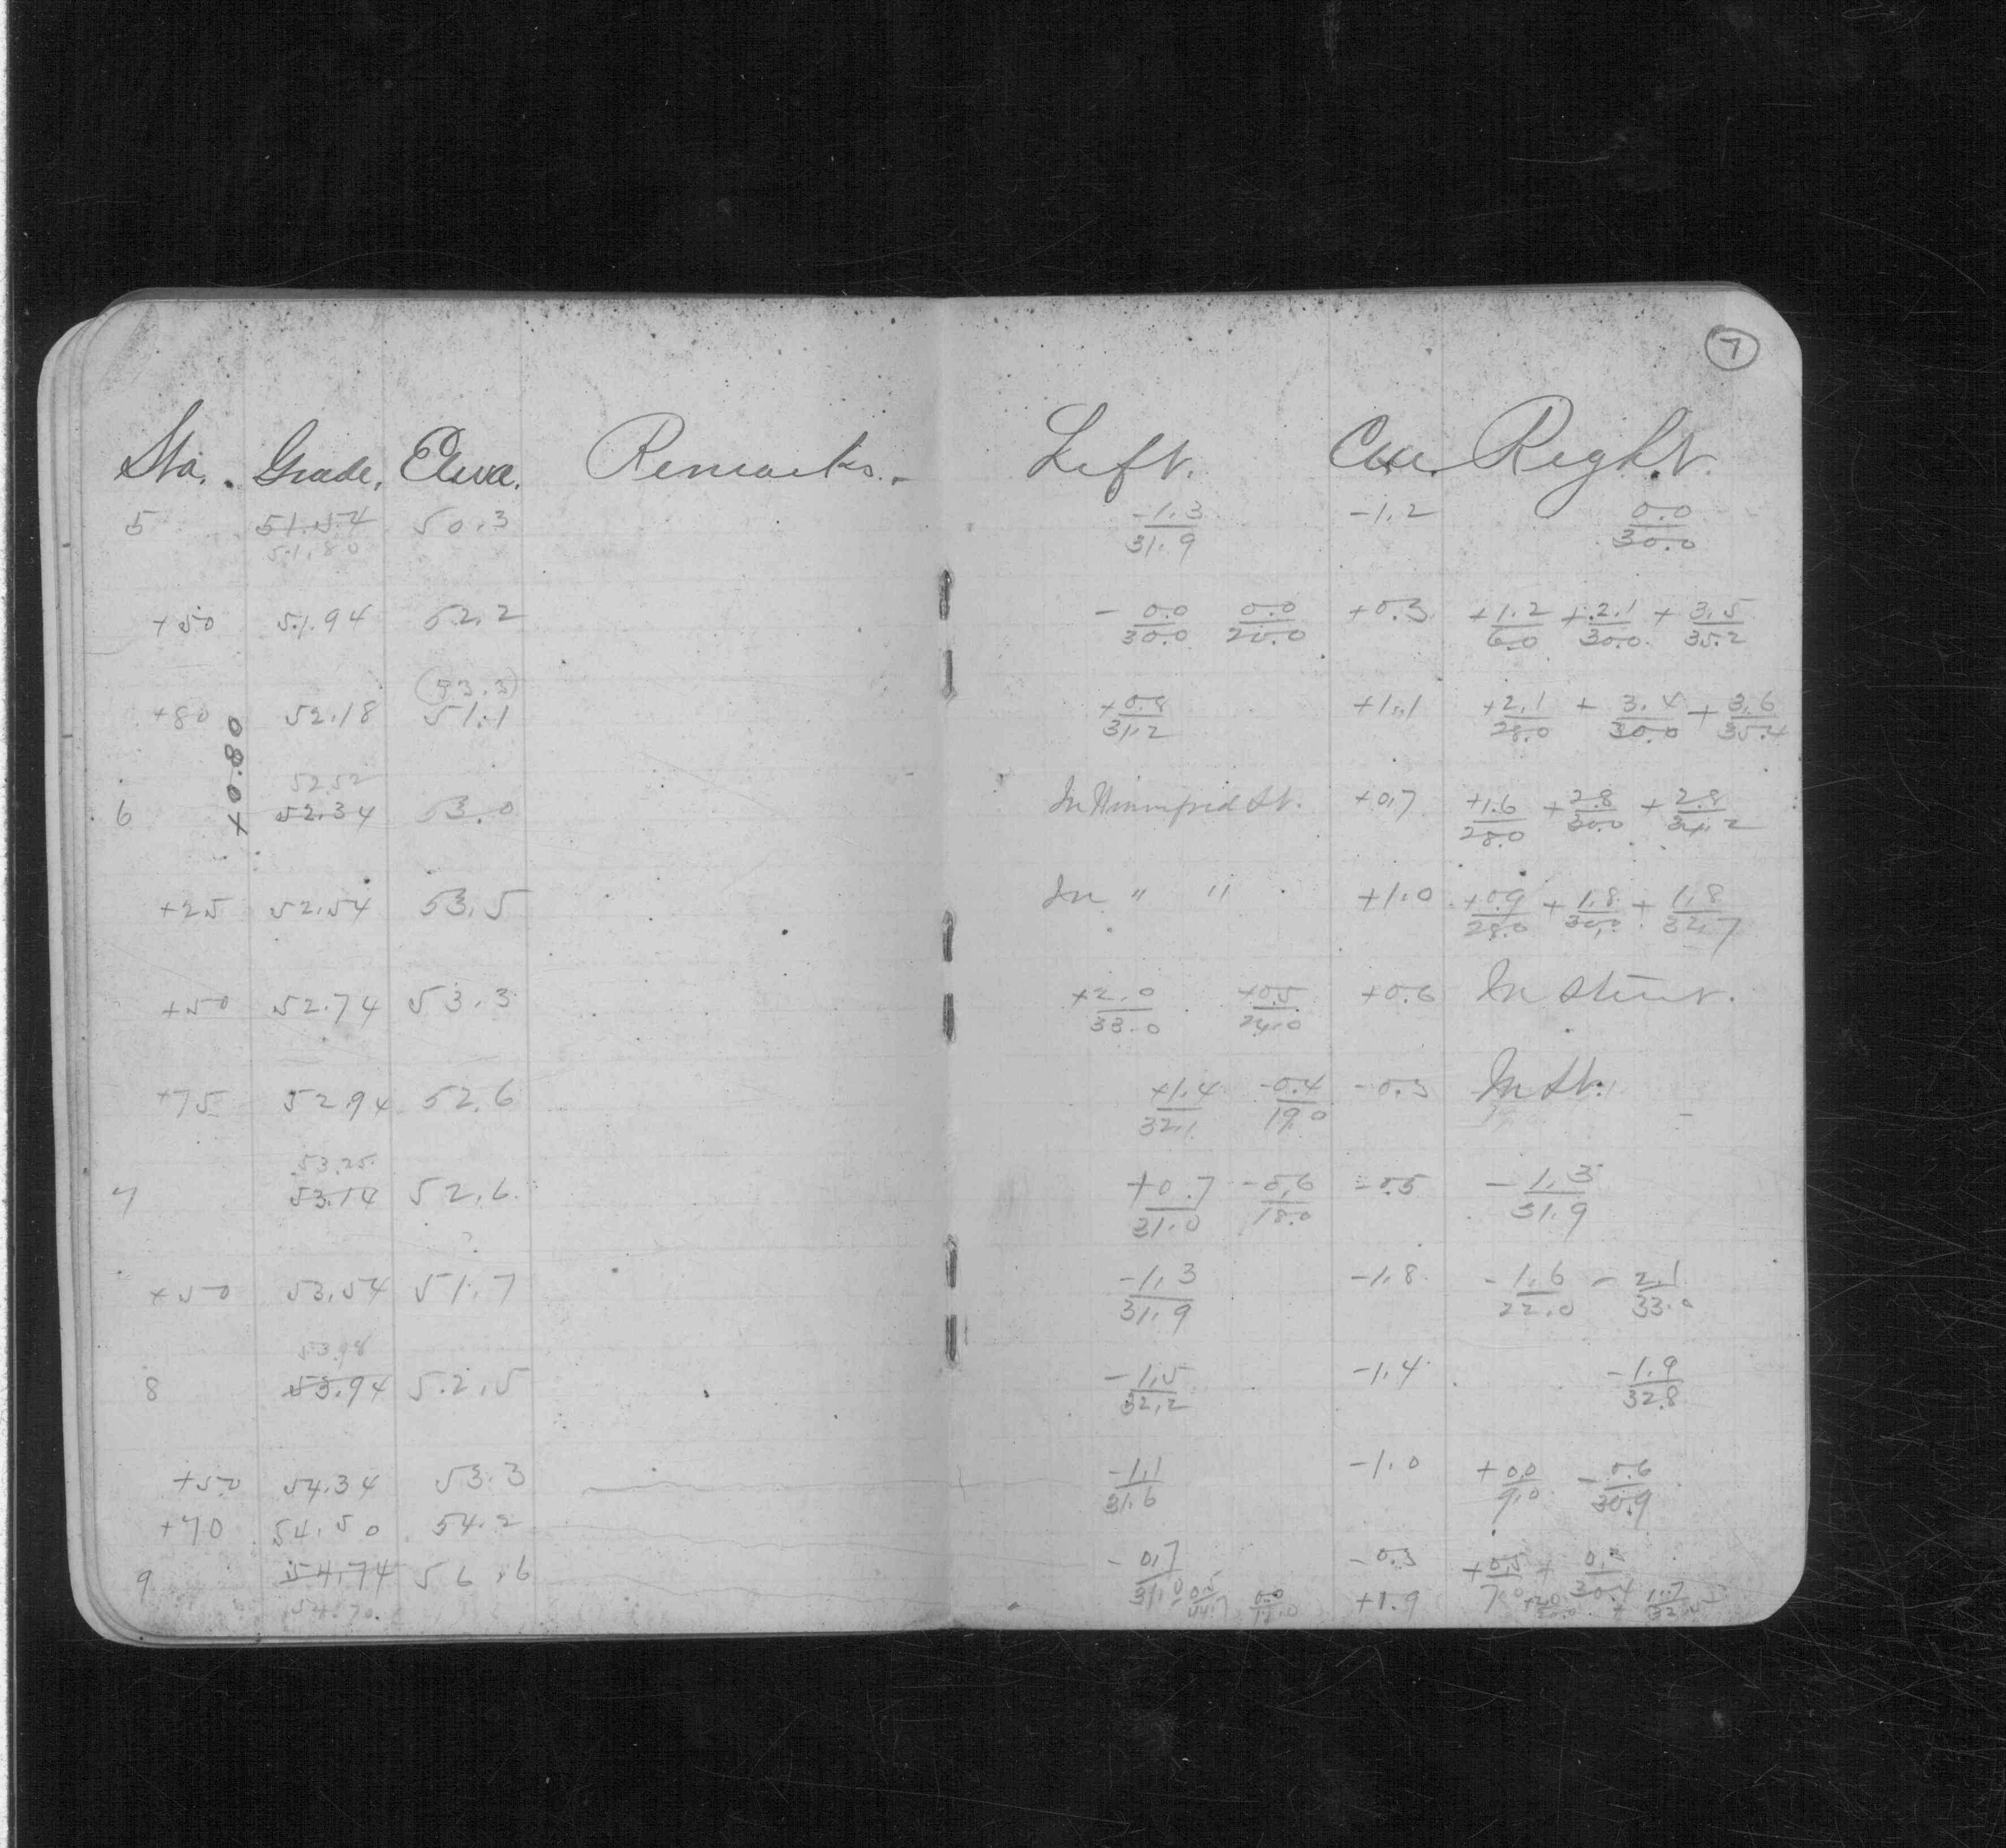 7
Sta. Grade. Eleva. Remarks. Left. Cen. Right.
5 51.54 50.3 -1.3/31.9 -1.2 0.0/30.0
51.80
+50 51.94 52.2 - 0.0/30.0 0.0/20.0 +0.3 +1.2/6.0 +2.1/30.0 +3.5/35.2
(53.3)
+80 52.18 51.1 +0.8/31.2 +1.1 +2.1/28.0 +3.4/30.0 +3.6/35.4
+0.80
52.52
6 52.34 53.0 In Winnifred St. +0.7 +1.6/28.0 +2.8/30.0 +2.8/34.2
+25 52.54 53.5 In " " +1.0 +0.9/28.0 +1.8/30.0 +1.8/32.7
+50 52.74 53.3 +2.0/33.0 +0.5/24.0 +0.6 In Street.
+75 52.94 52.6 +1.4/32.1 -0.4/19.0 -0.3 In St.
53.25
7 53.14 52.6 +0.7/31.0 -0.6/18.0 -0.5 -1.3/31.9
+50 53.54 51.7 -1.3/31.9 -1.8 -1.6/22.0 -2.1/33.0
53.98
8 53.94 52.5 -1.5/32.2 -1.4 -1.9/32.8
+50 54.34 53.3 -1.1/31.6 -1.0 +0.0/9.0 -0.6/30.9
+70 54.50 54.2 -0.7/31.0 -0.3 +0.5/7.0
9 54.74 56.6 0.0 +1.9 +2.0 +1.7
54.70